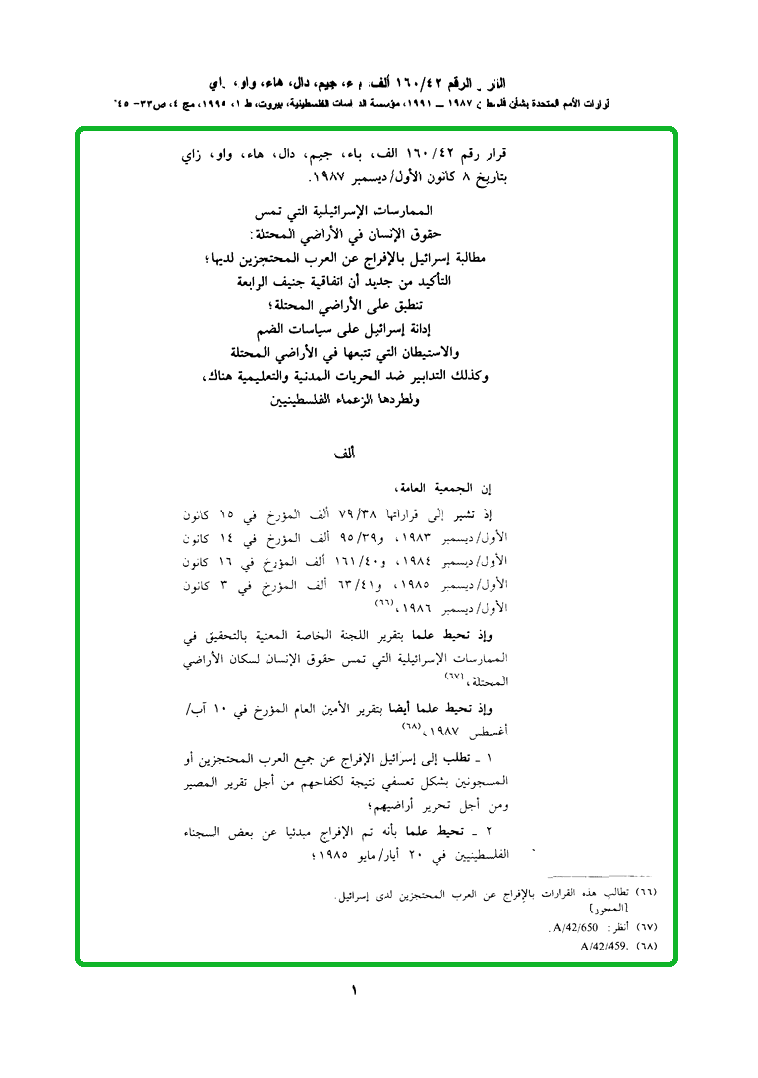 الرقم ١٦٠/٤٢ ألف، جيم، دال، هاء، واو،
الأمم المتحدة بشأن ١٩٨٧ – ١٩٩١، مؤسسة الفلسطينية، بيروت، ط ١، ١٩٩٥، مج ٤، ص٣٣-
قرار رقم ١٦٠/٤٢ الف، باء، جيم، دال، هاء، واو، زاي
بتاريخ ٨ كانون الأول/ديسمبر ١٩٨٧.
الممارسات الإسرائيلية التي تمس
حقوق الإنسان في الأراضي المحتلة:
مطالبة إسرائيل بالإفراج عن العرب المحتجزين لديها؛
التأكيد من جديد أن اتفاقية جنيف الرابعة
تنطبق على الأراضي المحتلة؛
إدانة إسرائيل على سياسات الضم
والاستيطان التي تتبعها في الأراضي المحتلة
وكذلك التدابير ضد الحريات المدنية والتعليمية هناك،
ولطردها الزعماء الفلسطينيين
ألف
إن الجمعية العامة،
إذ تشير إلى قراراتها ٧٩/٣٨ ألف المؤرخ في ١٥ كانون
الأول/ديسمبر ١٩٨٣، و٩٥/٣٩ ألف المؤرخ في ١٤ كانون
الأول/ديسمبر ١٩٨٤، و١٦١/٤٠ ألف المؤرخ في ١٦ كانون
الأول/ديسمبر ١٩٨٥، و٦٣/٤١ ألف المؤرخ في ٣ كانون
الأول/ديسمبر ١٩٨٦،(٦٦)
وإذ تحيط علما بتقرير اللجنة الخاصة المعنية بالتحقيق في
الممارسات الإسرائيلية التي تمس حقوق الإنسان لسكان الأراضي
المحتلة،(٦٧)
وإذ تحيط علما أيضا بتقرير الأمين العام المؤرخ في ١٠ آب/
أغسطس ١٩٨٧،(٦٨)
١ ـ تطلب إلى إسرائيل الإفراج عن جميع العرب المحتجزين أو
المسجونين بشكل تعسفي نتيجة لكفاحهم من أجل تقرير المصير
ومن أجل تحرير أراضيهم؛
٢ ـ تحيط علما بأنه تم الإفراج مبدئيا عن بعض السجناء
الفلسطينيين في ٢٠ أيار/مايو ١٩٨٥؛
(٦٦) تطالب هذه القرارات بالإفراج عن العرب المحتجزين لدى إسرائيل.
[المحرر]
(٦٧) أنظر: A/42/650.
(٦٨) A/42/459.
١